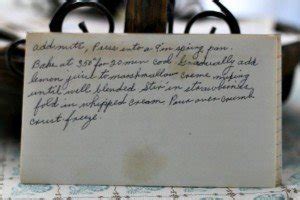 add melt, Press into a 9in spring pan.
Bake at 350° for 20 min cool Gradually add
lemon juice to marshmallow creme mixing
until well blended Stir in strawberries,
fold in whipped cream Pour over crumb
crust freeze.